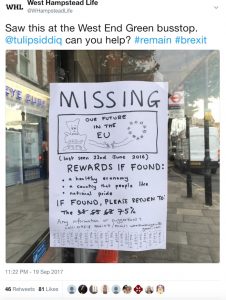 West Hampstead Life
WHL
@WHampsteadLife
Saw this at the West End Green busstop.
@tulipsiddiq can you help? #remain #brexit
MISSING
OUR FUTURE
IN THE
EU
(last seen 22nd June 2016)
REWARDS IF FOUND:
• a healthy economy
• a country that people like
• national pride
IF FOUND, PLEASE RETURN TO:
The
75%
Any information or suggestions?
11:22 PM - 19 Sep 2017
46 Retweets 81 Likes